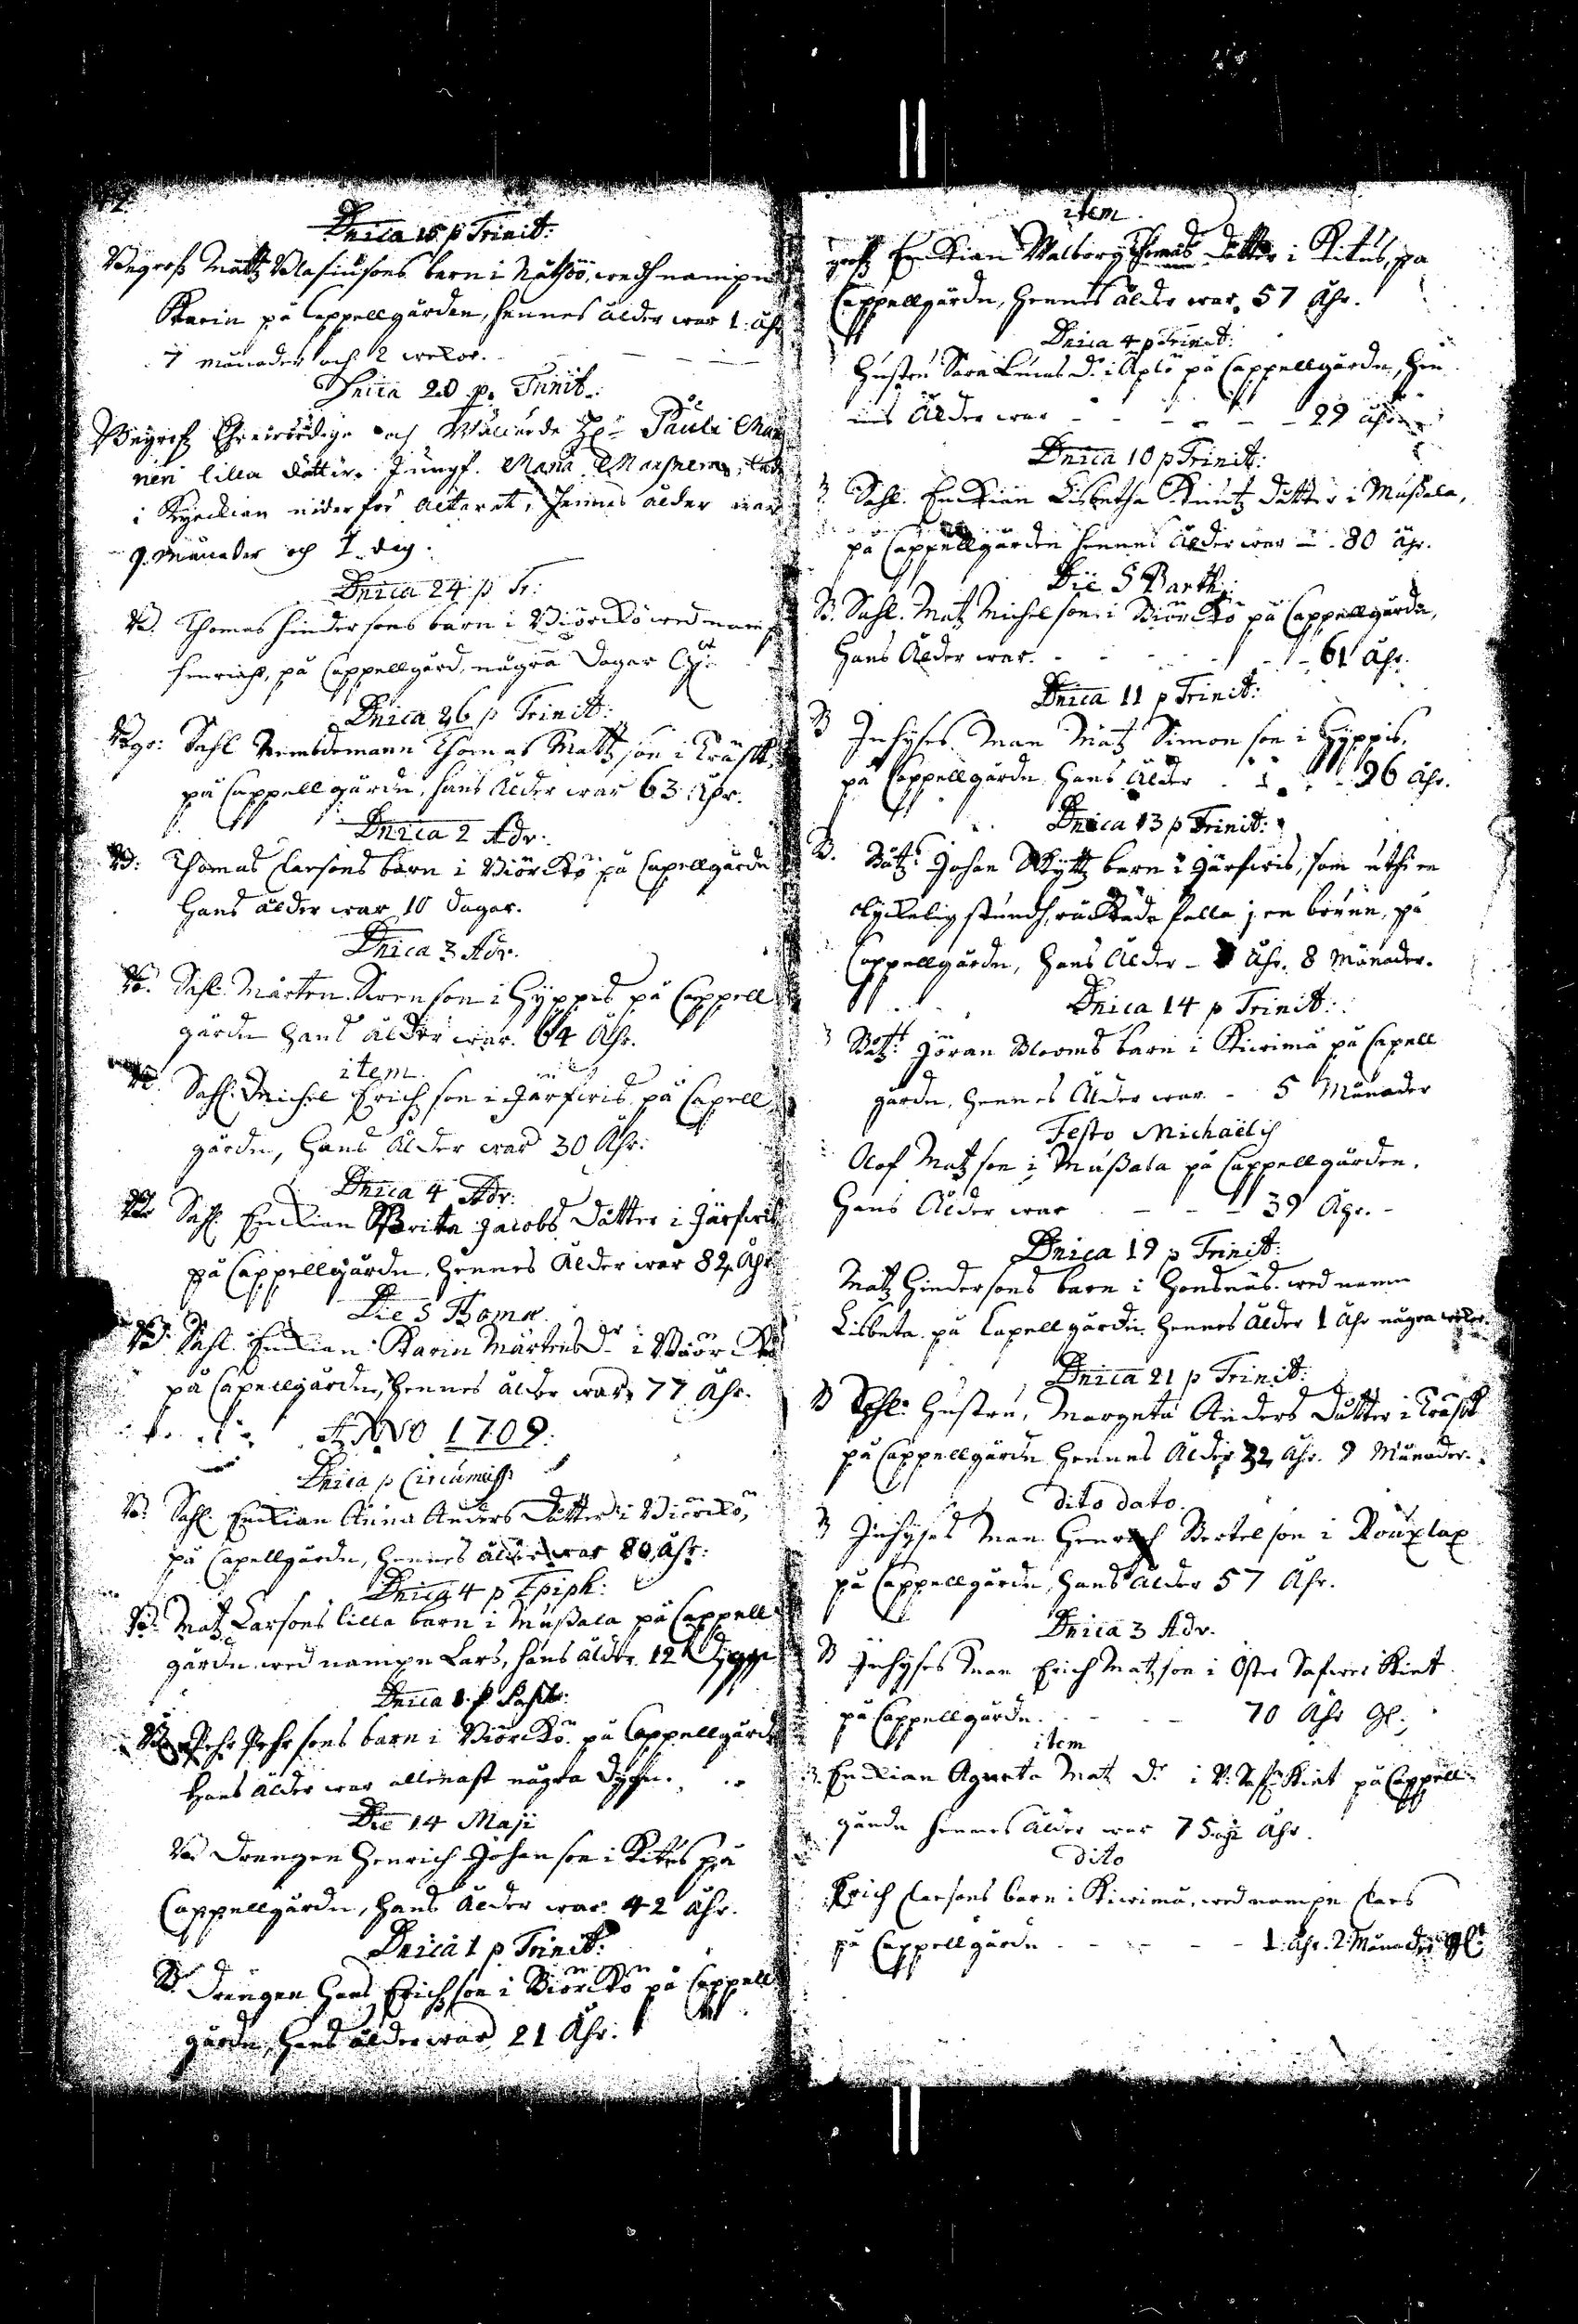 Dnica 15 p Trinit:
Begrofs Mattz Blasiusons barn i Nåtsöö, wedh nampn
Karin på Cappellgården, hennes ålder war 1. åhr
7 månader och 2 wekor.
Dnica 20 p. Trinit.
Begrofz Ehrewördige och Wällärde Hr Pauli
neri lilla dotter Jungf. Maria
i Kyrckian nider för altaret, hennes ålder war
9. Månader och 1 dag.
Dnica 24 p Tr:
B. Thomas Hindersons barn i Biörckö wed nampn
Henrich, på Cappellgård, några dagar
Dnica 26 p Trinit:
Begr: Sahl Nembdemann Thomas Mattzson i Träsk,
på Cappellgården, hans Ålder war 63 Åhr.
Dnica 2 Adv.
B: Thomas Clarsons barn i Biörckö på Capellgården
Hans ålder war 10 dagar.
Dnica 3 Adv.
B. Sahl. Mårten Swenson i Hyppis på Cappell
gården hans ålder war. 64 Åhr.
item.
B. Sahl. Michel Erichson i Järfwis på Capell
gården, Hans Ålder war 30 Åhr.
Dnica 4 Adv:
B Sahl Enckian Brita Jacobs dåtter i Järfwis
på Cappellgården. Hennes Ålder war 82 Åhr
Die S Thomæ.
B. Sahl. Enckian Karin Mårtens dr i Biörckö
på Capellgården, Hennes ålder war 77 Åhr.
ANNO 1709.
Dnica p Circumciss
B. Sahl. Enckian Anna Anders Dåtter i Biörckö,
på Capellgården, Hennes ålder war 80, Åhr:
Dnica 4 p Epiph:
B. Matz Larsons lilla barn i Mußala på Cappell
gården wed nampn Lars, hans ålder 12 dygn
Dnica 1 p Pasch:
B Pehr Pehrsons barn i Biörckö på Cappellgården
Hans ålder war allenast några dygn.
Die 14 Maji
B. Drengen Henrich Johanson i Kitus på
Cappellgården, Hans Ålder war 42 Åhr.
Dnica 1 p Trinit:
B. Drängen Hans Erichson i Biörckö på Cappell
gården, Hans ålder war 21 Åhr.
item.
grofz Enckian Walborg Thomas dåtter i Kitus, på
Cappellgården, Hennes ålder war. 57 Åhr.
Dnica 4 p Trinit:
Hustru Sara Lucas d. i Äplö på Cappellgården, Hen
nes Ålder war - - - - - 29 åhr
Dnica 10 p Trinit:
Sahl. Enckian Lisbetha Knutz dåtter i Mußala,
på Cappellgården Hennes Ålder war - 80 Åhr.
Die S Barth:
B. Sahl. Matz Michelson i Biörckö på Cappellgården,
Hans Ålder war. - - - 61 Åhr.
Dnica 11 p Trinit:
B Inhyses Man Matz Simonson i Hyppis.
på Cappellgården Hans Ålder - - - 96 Åhr.
Dnica 13 p Trinit:
B. Båtz: Johan Skyttz barn i Järfwis, som uthi en
olyckelig stundh, råckade falla i en brunn, på
Cappellgården, Hans Ålder - Åhr. 8 Månader.
Dnica 14 p Trinit:
Båtz: Jöran Blooms barn i Kiirima på Capell
gården, Hennes Ålder war. - 5 Månader
Festo Michaëlis
Olof Matzson i Mußala på Cappellgården.
Hans Ålder war - - - 39 Åhr. -
Dnica 19 p Trinit:
Matz Hindersons barn i Honsnäs. wed namn
Lisbeta på Capellgården Hennes Ålder 1 Åhr några wekor.
Dnica 21 p Trinit:
B Sahl: Hustru, Margeta Anders dåtter i Träsk
på Cappellgården Hennes Ålder 32 Åhr. 9 Månader.
dito dato.
B Inhyses Man Henrich Bertelson i Rouxlax
på Cappellgården, Hans Ålder 57 Åhr.
Dnica 3 Adv.
B Inhyses Man Erich Matzson i Öster Safwer Kiet
på Cappellgården. - - - 70 Åhr Gl.
item
B. Enckian Agneta Matz d. i W. Saf: Kiet på Cappell
gården Hennes ålder war 75 Åhr.
dito
Erich Clarsons barn i Kiirima, wed nampn Clars
på Cappellgården - - - - 1 Åhr. 2. Månader gl.